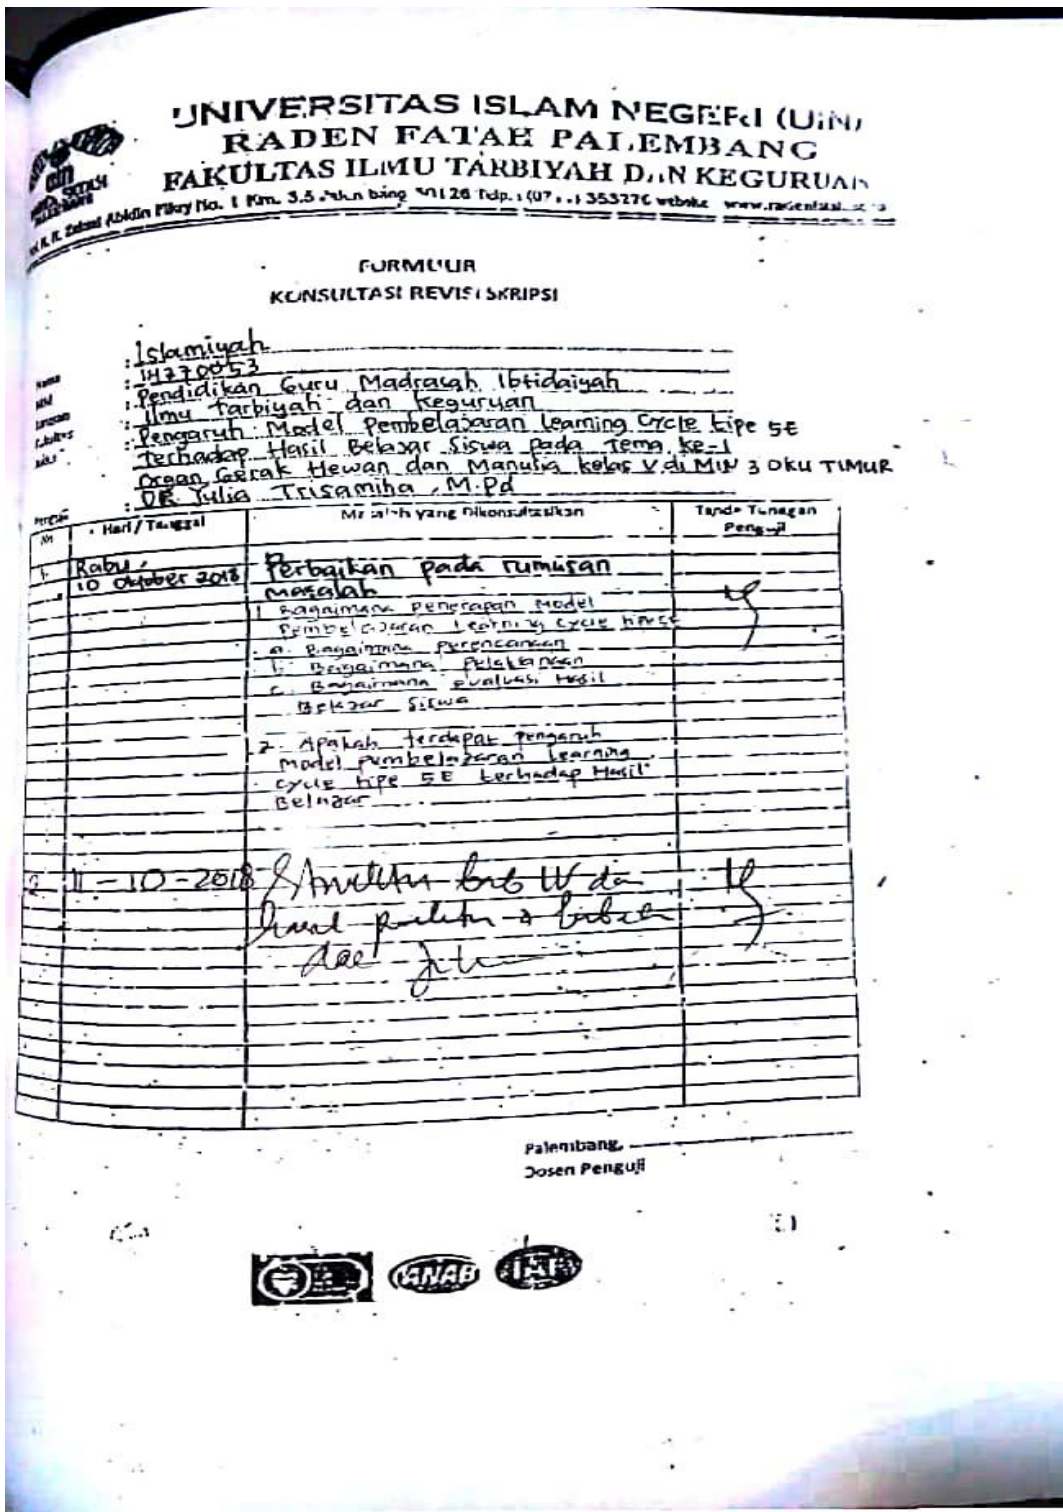 UNIVERSITAS ISLAM NEGERI (UIN)
RADEN FATAH PALEMBANG
FAKULTAS ILMU TARBIYAH DAN KEGURUAN
Zainal Abidin Fikry No. 1 Km. 3.5
FORMULIR
KONSULTASI REVISI SKRIPSI
Nama : Islamiyah
NIM : 14270053
Jurusan : Pendidikan Guru Madrasah Ibtidaiyah
Fakultas : Ilmu tarbiyah dan keguruan
: Pengaruh Model Pembelajaran Learning Cycle tipe 5E
terhadap Hasil Belajar Siswa pada Tema ke-1
Organ Gerak Hewan dan Manusia kelas V di MIN 3 OKU TIMUR
: DR Yulia Trisamiha, M.Pd
No Hari / Tanggal Masalah yang Dikonsultasikan Tanda Tangan
Penguji
1. Rabu, Perbaikan pada rumusan
10 Oktober 2018 masalah
1. Bagaimana penerapan model
pembelajaran learning cycle tipe 5E
a. Bagaimana perencanaan
b. Bagaimana pelaksanaan
c. Bagaimana evaluasi Hasil
Belajar Siswa
2. Apakah terdapat pengaruh
model pembelajaran learning
cycle tipe 5E terhadap Hasil
Belajar
2 11-10-2018
Palembang,
Dosen Penguji
ANAB
IAF